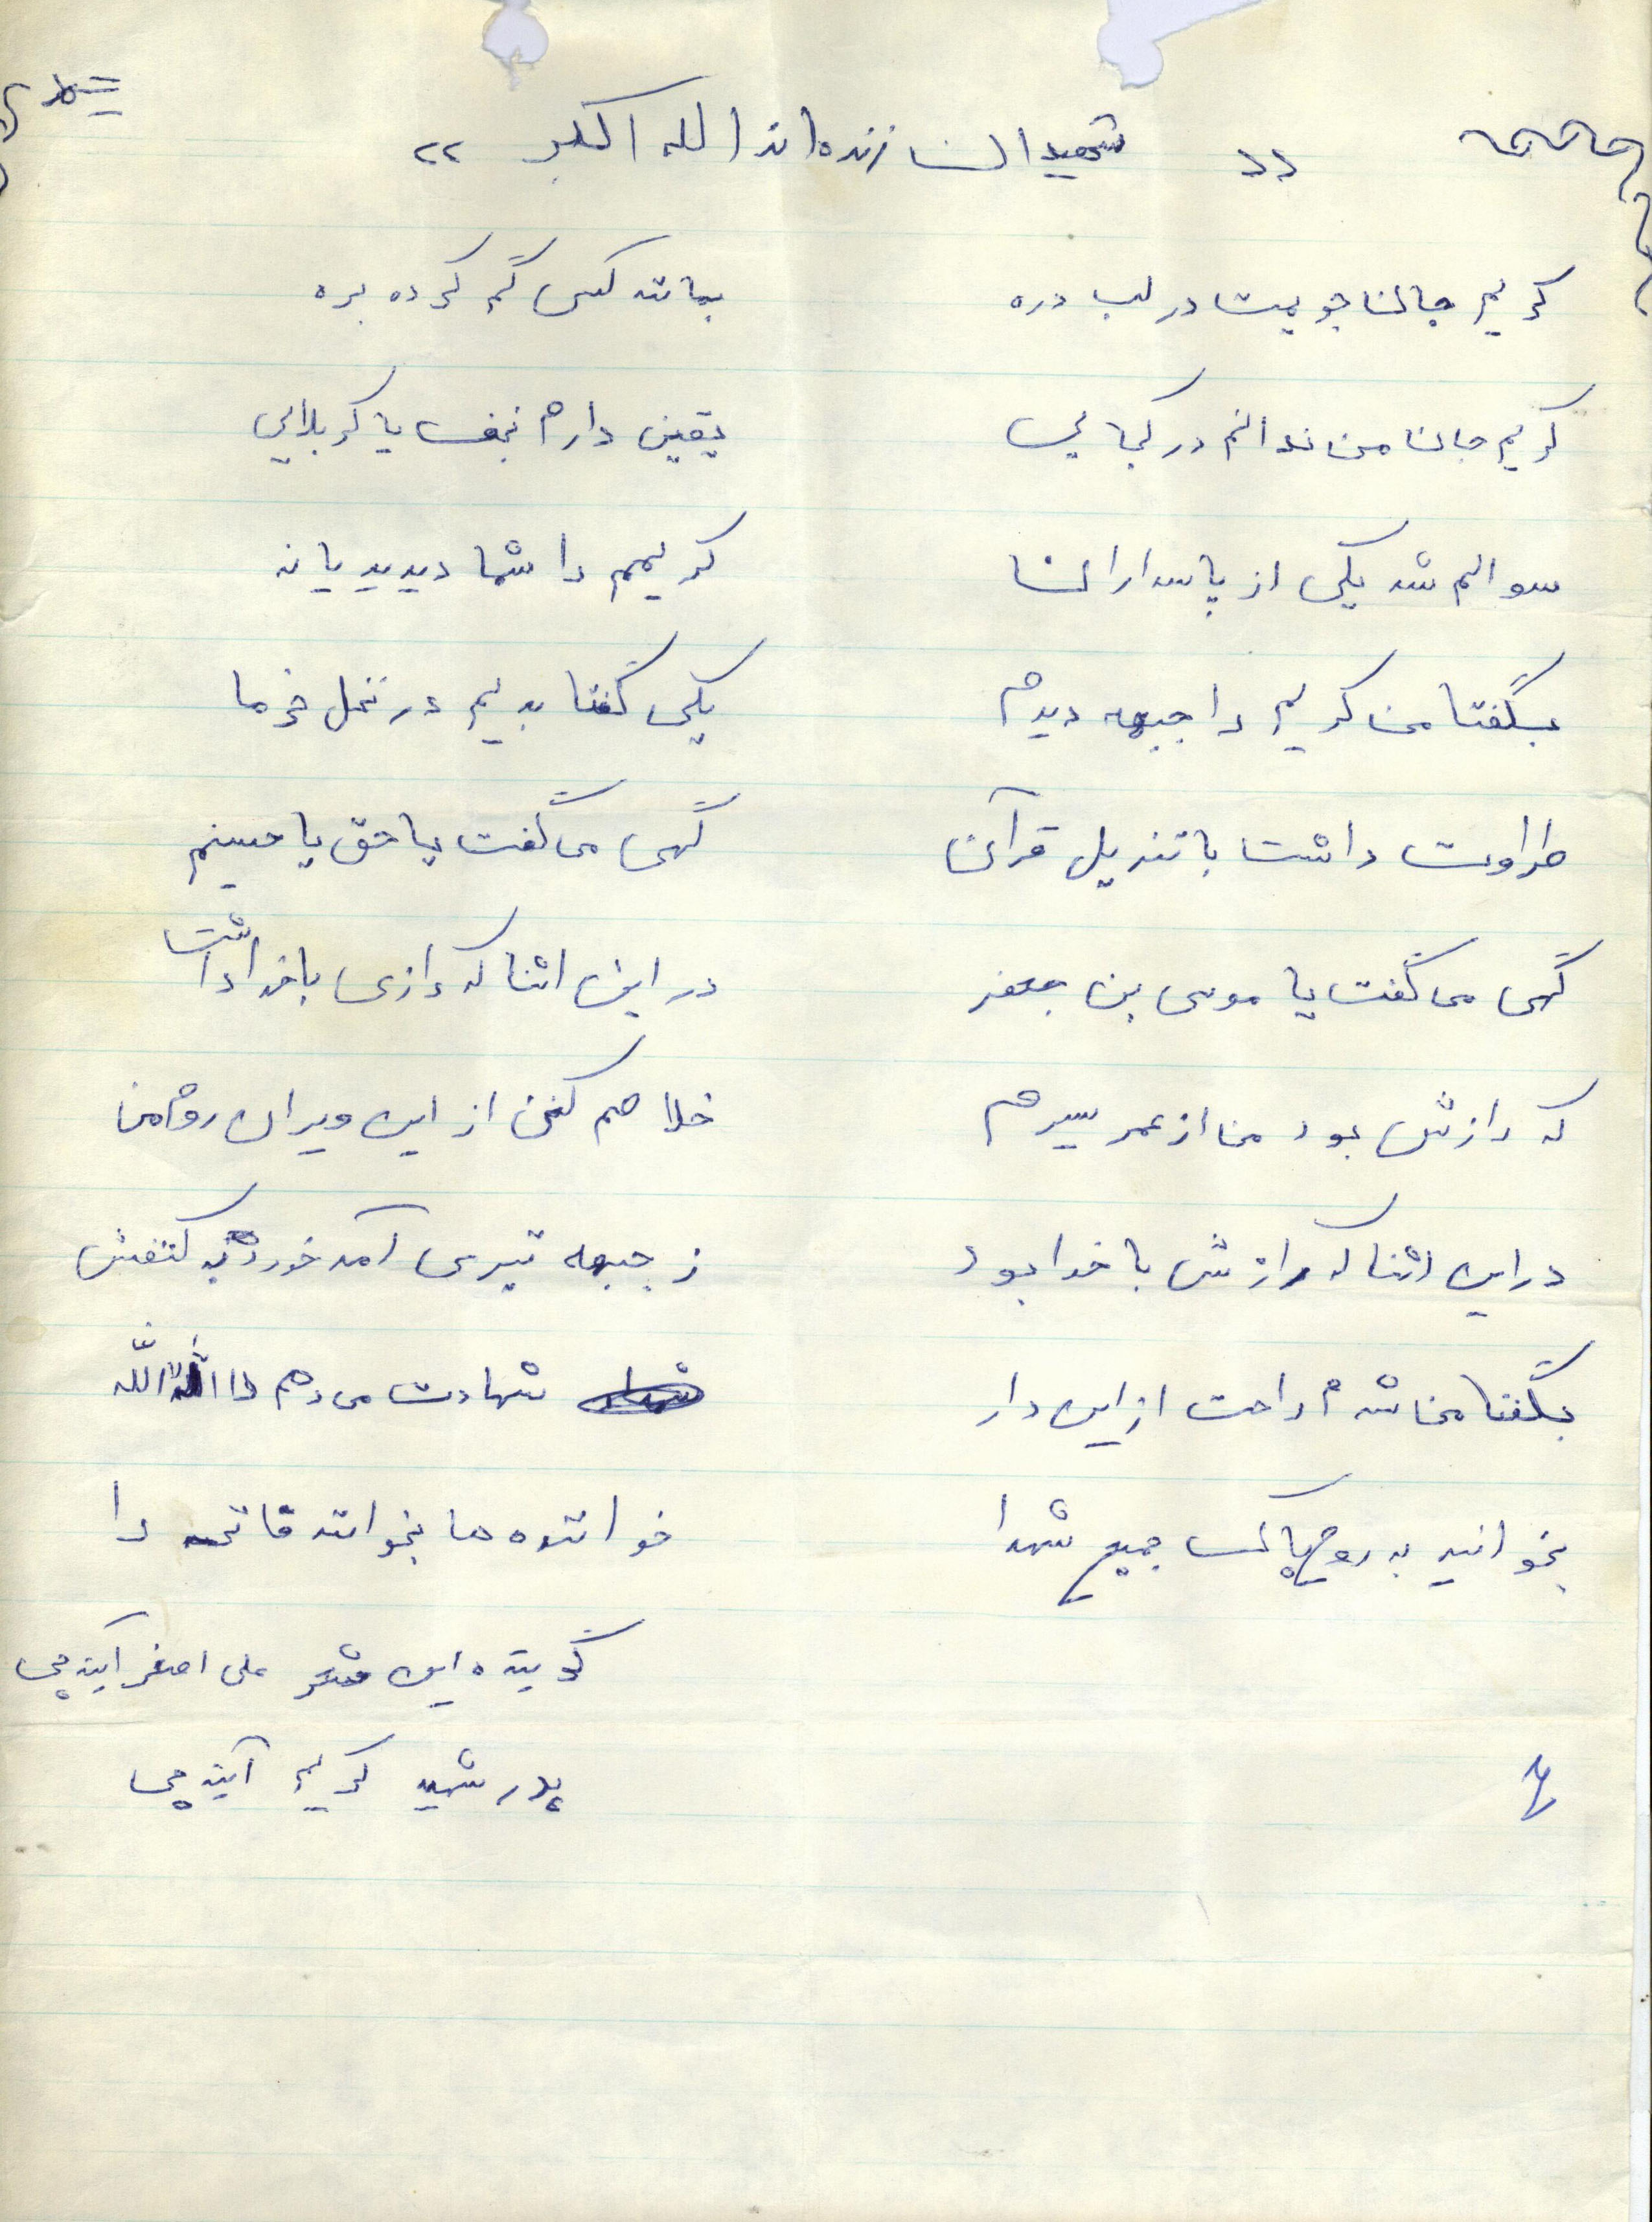 « شهیدان زنده اند الله اکبر »
کریم جان جویمت در لب دره بمانند کسی گم کرده بره
کریم جان من ندانم در کجایی یقین دارم نجف یا کربلایی
سوالم شد یکی از پاسداران کریمم را شما دیدید یا نه
بگفتا من کریم را جبهه دیدم یکی گفتا بدیم در نخل خرما
طراوت داشت با تنزیل قرآن گهی می گفت یا حق یا حسینم
گهی می گفت یا موسی بن جعفر در این اثنا که رازی با خدا داشت
که رازش بود من از عمر سیرم خلاصم کن از این ویران روم من
در این اثنا که رازش با خدا بود ز جبهه تیری آمد خورد به کتفش
بگفتا من شدم راحت از این دار شهادت می دهم الله الله
بخوانید به روح پاک جمیع شهدا خواننده ها بخوانند فاتحه را
گوینده این شعر علی اصغر آینه چی
پدر شهید کریم آینه چی